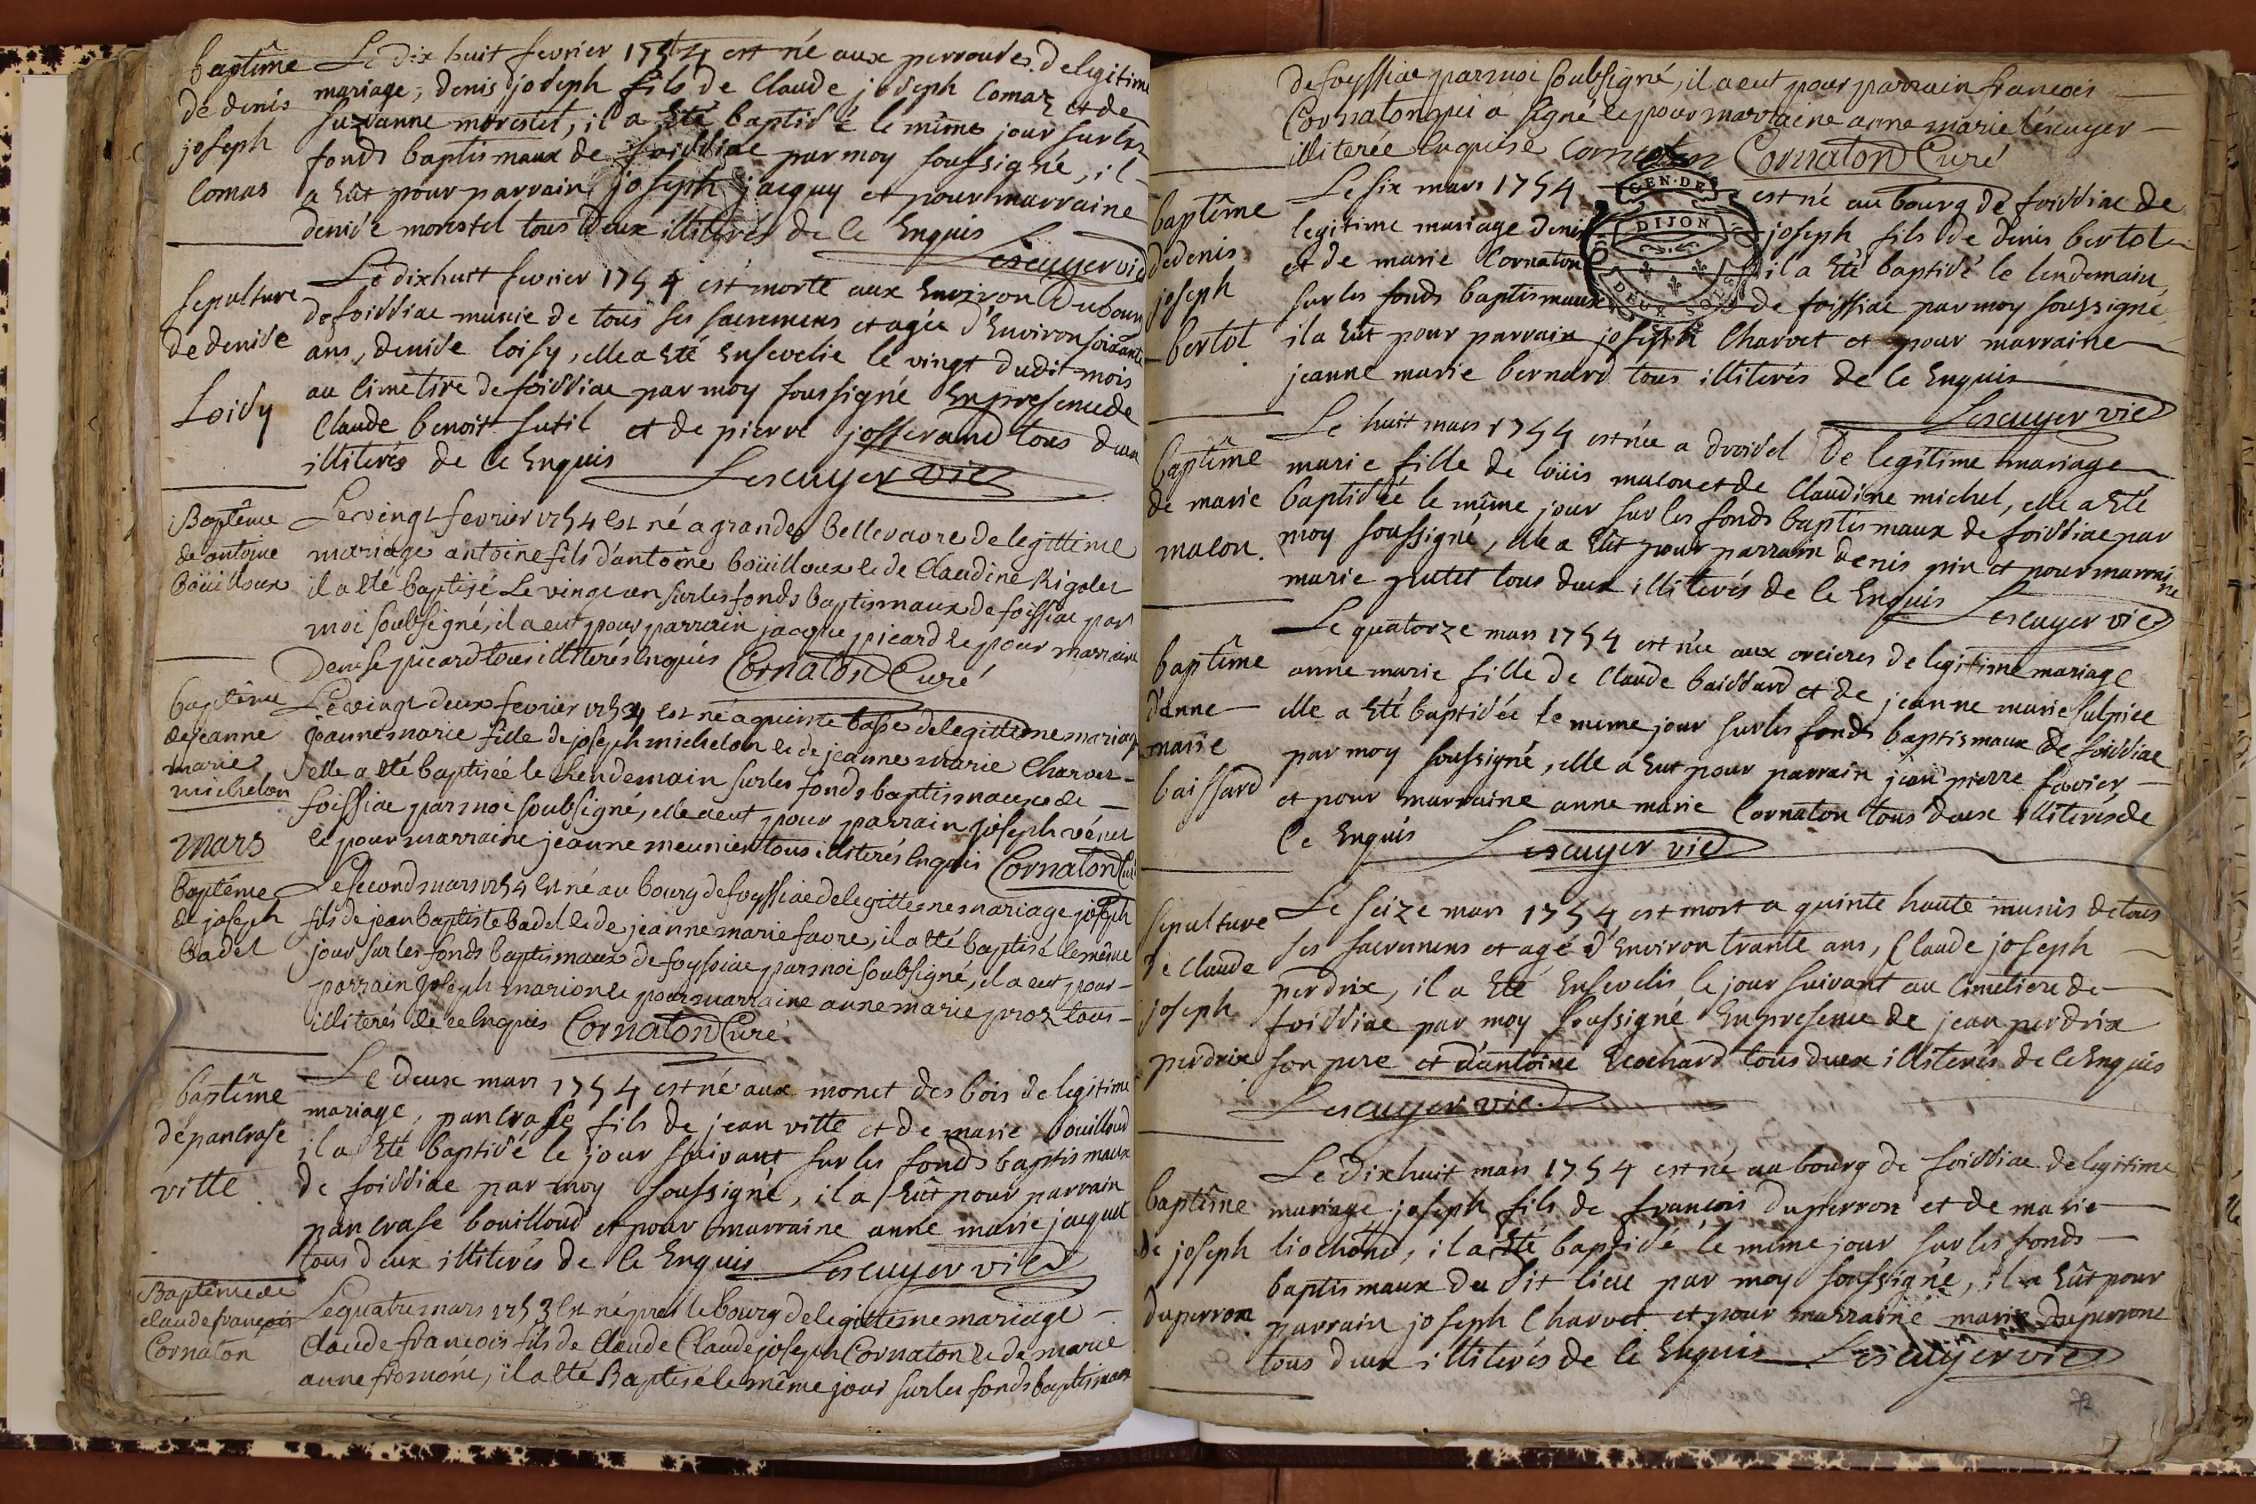 baptême
de denis
joseph
Comas
Le dix huit fevrier 1754 est né aux perroudes de legitime
mariage, denis joseph fils de Claude joseph Comaz et de
suzanne morestel, il a Eté baptisé le même jour sur les
fonds baptismaux de foissiac par moy soussigné, il
a Eût pour parrain joseph jacquy et pour marraine
denise morestel tous deux illiterés de ce Enquis
Lescuyer vic
sepulture
de denise
Loisy
Le dixhuit fevrier 1754 est morte aux Environ du bourg
de foissiac munie de tous ses sacremens et agée d'Environ soixante
ans, denise loisy, elle a Eté Ensevelie le vingt dudit mois
au Cimetire de foissiac par moy soussigné En presence de
Claude benoit sutil et de pierre josserand tous deux
illiterés de ce Enquis Lescuyer vic
Baptême
de antoine
Boüilloux
Le vingt fevrier 1754 est né a grandes Bellevavre de legittime
mariage antoine fils d'antoine boüilloux et de Claudine Rigolet
il a été baptisé Le vingt un sur les fonds baptismaux de foissiac par
moi soubsigné, il a eut pour parrain jacque picard et pour marraine
Denise picard tous illiterés Enquis Cornaton Curé
baptême
de jeanne
marie
michelon
Le vingt deux fevrier 1754 est né a quinte basse de legittime mariage
jeanne marie fille de joseph michelon et de jeanne marie Charvet
elle a été baptisée le lendemain sur les fonds baptismaux de
foissiac par moi soubsigné, elle a eut pour parrain joseph vénet
et pour marraine jeanne meunier tous illiterés Enquis Cornaton Curé
mars
baptême
de joseph
badel
Le second mars 1754 est né au bourg de foyssiac de legittime mariage joseph
fils de jean baptiste badel et de jeanne marie favre, il a été baptisé le même
jour sur les fonds baptismaux de foyssiac par moi soubsigné, il a eut pour
parrain joseph marion et pour marraine anne marie proz tous
illiterés de ce Enquis Cornaton Curé
baptême
de pancrase
ville
Le deux mars 1754 est né aux monet des bois de legitime
mariage, pancrase fils de jean ville et de marie bouilloud
il a Eté baptisé le jour suivant sur les fonds baptismaux
de foissiac par moy soussigné, il a Eût pour parrain
pancrase bouilloud et pour marraine anne marie jacquet
tous deux illiterés de ce Enquis Lescuyer vic
Baptême de
claude françois
Cornaton
Le quatre mars 1753 est né près le bourg de legittime mariage
Claude françois fils de Claude Claude joseph Cornaton et de marie
anne fromond, il a été Baptisé le même jour sur les fonds baptismaux
de foyssiac par moi soubsigné, il a eut pour parrain françois
Cornaton qui a signé et pour marraine anne marie lécuyer
illiterée Enquise Cornaton Cornaton Curé
GEN. DE
DIJON
DEUX SOLS
baptême
de denis
joseph
bertol
Le six mars 1754 est né au bourg de foissiac de
legitime mariage denis joseph fils de denis bertol
et de marie Cornaton il a Eté baptisé le lendemain
sur les fonds baptismaux de foissiac par moy soussigné
il a Eût pour parrain joseph Charvet et pour marraine
jeanne marie bernard tous illiterés de ce Enquis
Lescuyer vic
baptême
de marie
macon
Le huit mars 1754 est née a droisel De legitime mariage
marie fille de loüis macon et de Claudine michel, elle a Eté
baptisée le même jour sur les fonds baptismaux de foissiac par
moy soussigné, elle a Eût pour parrain denis pin et pour marraine
marie putet tous deux illiterés de ce Enquis Lescuyer vic
baptême
d'anne
marie
baissard
Le quatorze mars 1754 est née aux orcieres de legitime mariage
anne marie fille de Claude baissard et de jeanne marie sulpice
elle a Eté baptisée le meme jour sur les fonds baptismaux de foissiac
par moy soussigné, elle a Eut pour parrain jean pierre favier
et pour marraine anne marie Cornaton tous deux illiterés de
ce Enquis Lescuyer vic
sepulture
de Claude
joseph
perdrix
Le seize mars 1754 est mort a quinte haute munis de tous
ses sacremens et agé d'Environ trante ans, Claude joseph
perdrix, il a Eté Ensevelis le jour suivant au Cimetiere de
foissiac par moy soussigné En presence de jean perdrix
son pere et d'antoine Ecochard tous deux illiterés de ce Enquis
Lescuyer vic
baptême
de joseph
duperron
Le dixhuit mars 1754 est né au bourg de foissiac de legitime
mariage joseph fils de françois duperron et de marie
liochond, il a Eté baptisé le meme jour sur les fonds
baptismaux du dit lieu par moy soussigné, il a Eût pour
parrain joseph Charvet et pour marraine marie duperrone
tous deux illiterés de ce Enquis Lescuyer vic
72